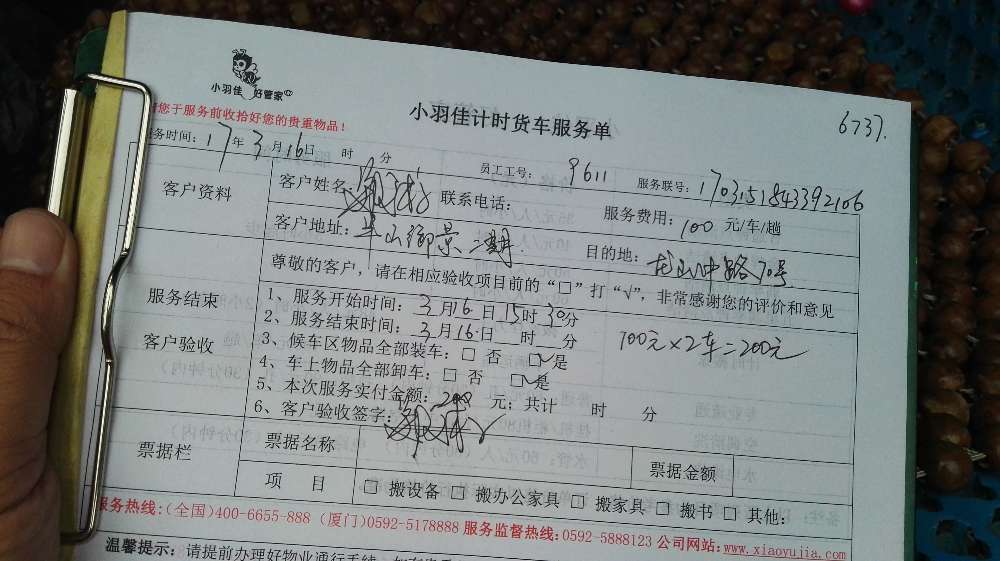 小羽佳 好管家
小羽佳计时货车服务单
6737.
请您于服务前收拾好您的贵重物品！
服务时间：17年3月16日 时 分 员工工号：9611 服务联号：1703151843392106
客户资料
客户姓名： 联系电话： 服务费用：100元/车/趟
客户地址：半山御景二期 目的地：龙山中路70号
服务结束
客户验收
尊敬的客户，请在相应验收项目前的“□”打“√”，非常感谢您的评价和意见
1、服务开始时间：3月16日15时30分
2、服务结束时间：3月16日 时 分
100元×2车=200元
3、候车区物品全部装车：□ 否 □√是
4、车上物品全部卸车：□ 否 □√是
5、本次服务实付金额：200元；共计 时 分
6、客户验收签字：
票据栏
票据名称 票据金额
项 目 □ 搬设备 □ 搬办公家具 □ 搬家具 □ 搬书 □ 其他：
服务热线：（全国）400-6655-888（厦门）0592-5178888 服务监督热线：0592-5888123 公司网站：www.xiaoyujia.com
温馨提示：请提前办理好物业通行手续